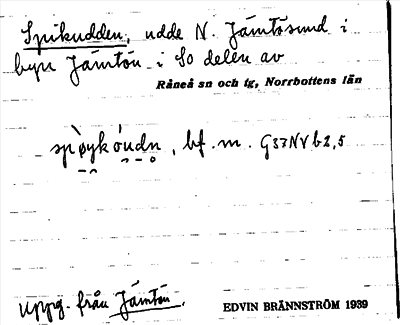 Spikudden, udde N. Jämtösund i
byn Jämtön i SO delen av
Råneå sn och tg, Norrbottens län
spøyk óudn, bf. m. G33NVb2,5
uppg. från Jämtön.
EDVIN BRÄNNSTRÖM 1939